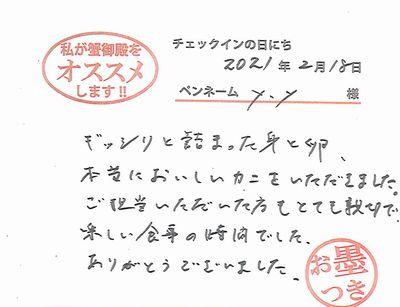 私が蟹御殿を
オススメ
します!!
チェックインの日にち
2021年2月18日
ペンネーム Y.Y 様
ギッシリと詰まった身と卵、
本当においしいカニをいただきました。
ご担当いただいた方もとても親切で、
楽しい食事の時間でした。
ありがとうございました。
お墨
つき